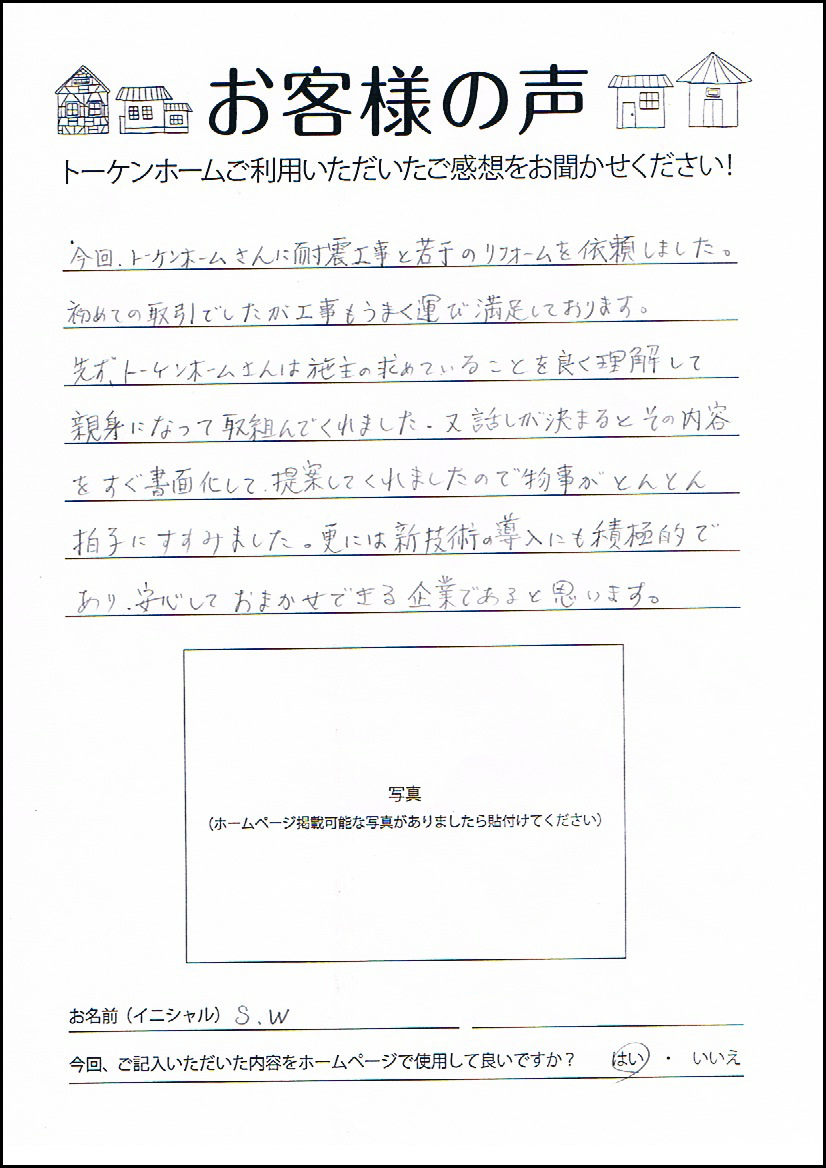 お客様の声
トーケンホームご利用いただいたご感想をお聞かせください!
今回、トーケンホームさんに耐震工事と若干のリフォームを依頼しました。
初めての取引でしたが工事もうまく運び満足しております。
先ず、トーケンホームさんは施主の求めていることを良く理解して
親身になって取組んでくれました。又話しが決まるとその内容
をすぐ書面化して、提案してくれましたので物事がとんとん
拍子にすすみました。更には新技術の導入にも積極的で
あり、安心しておまかせできる企業であると思います。
写真
(ホームページ掲載可能な写真がありましたら貼付けてください)
お名前(イニシャル) S.W
今回、ご記入いただいた内容をホームページで使用して良いですか? はい ・ いいえ